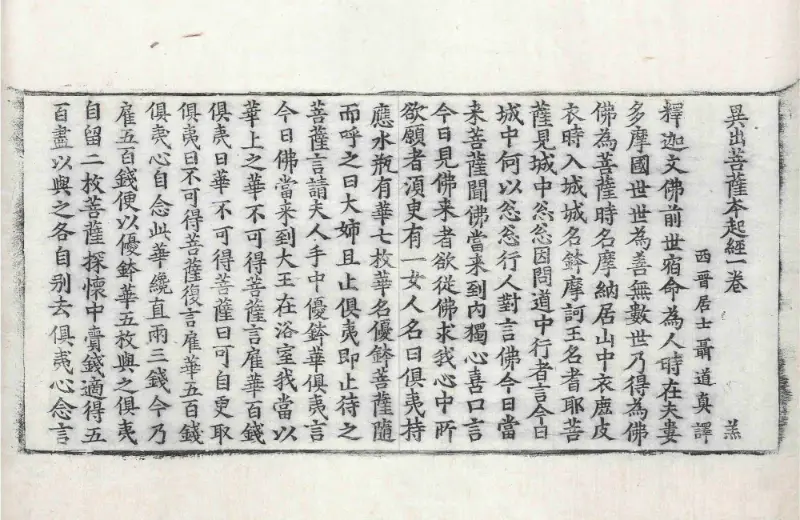 異出菩薩本起經一卷 羔
西晉居士聶道真譯
釋迦文佛前世宿命為人時在夫婁
多摩國世世為善無數世乃得為佛
佛為菩薩時名摩納居山中衣鹿皮
衣時入城城名鉢摩訶王名耆耶菩
薩見城中忩忩因問道中行者言今日
城中何以忩忩行人對言佛今日當
来菩薩聞佛當来到內獨心喜口言
今日見佛来者欲從佛求我心中所
欲願者湏臾有一女人名曰俱夷持
應水瓶有華七枚華名優鉢菩薩隨
而呼之曰大姉且止俱夷即止待之
菩薩言請夫人手中優鉢華俱夷言
今日佛當来到大王在浴室我當以
華上之華不可得菩薩言雇華百錢
俱夷曰華不可得菩薩曰可自更取
俱夷曰不可得菩薩復言雇華五百錢
俱夷心自念此華纔直兩三錢今乃
雇五百錢便以優鉢華五枚與之俱夷
自留二枚菩薩探懷中賷錢適得五
百盡以與之各自別去俱夷心念言